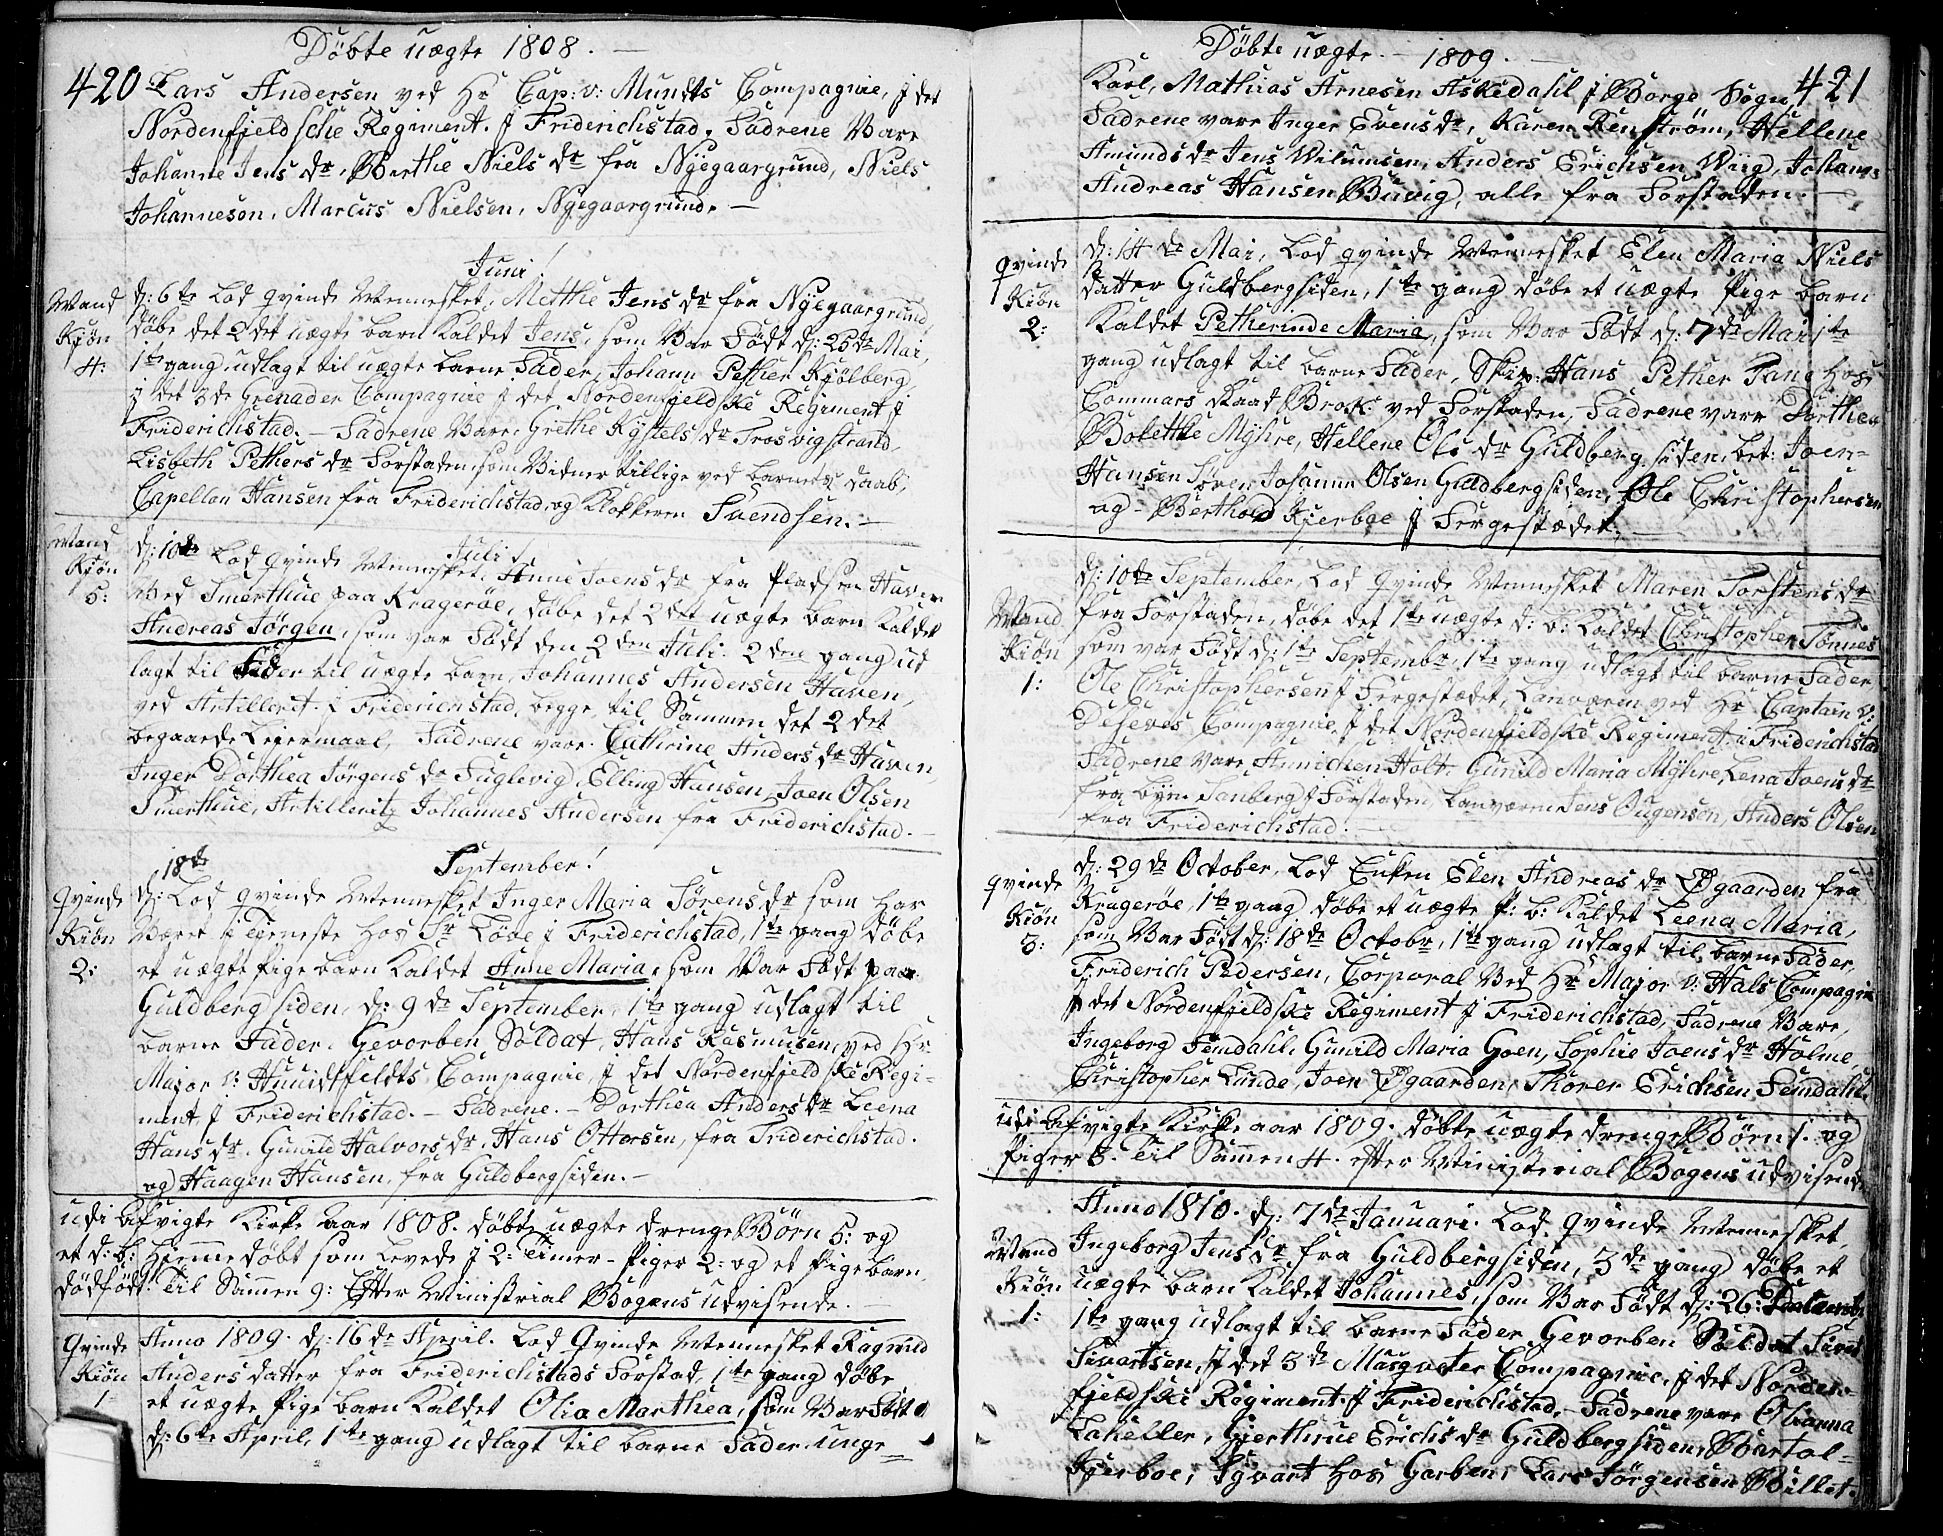 Døbte uægte 1808.
420 Lars Andersen ved Hr Cap: v: Mundts Compagnie, J det
Nordenfjeldsche Regiment. J Friderichstad. Fadrene Vare
Johanne Jens dr, Berthe Niels dr fra Nyegaargrund, Niels
Johannesen, Marcus Nielsen, Nyegaargrund.
Juni!
Mand
Kiøn
4:
d: 6te Lod qvinde Mennesket, Metthe Jens dr fra Nyegaargrund,
døbe det 2det uægte barn kaldet Jens, som Var Født d: 25de Mai,
1te gang udlagt til uægte barne Fader, Johann Pether Kjölberg,
j det 3de Grenader Compagnie J det Nordenfjeldske Regiment J
Friderichstad. - Fadrene Vare. Grethe Kystels dr Trosvigstrand
Lisbeth Pethers dr Forstaden, som Vidner tillige ved barnets daab,
Capellan Hansen fra Friderichstad og Klokkeren Svendsen.
Juli!
Mand
Kiøn
5:
d: 10de Lod qvinde Mennesket, Anne Joens dr fra Pladsen Haven
Ved Smerthue paa Kragerøe, døbe det 2det uægte barn kaldet
Andreas Jørgen, som var Født den 2den Juli. 2den gang ud
lagt til Fader til uægte barn, Johannes Andersen Haven,
ved Artillerit. J Friderichstad, begge til Sammen det 2det
begaaede Leiermaal, Fadrene vare. Cathrine Anders dr Haven
Inger Dorthea Jørgens dr Fuglevig, Elling Hansen, Joen Olsen
Smerthue, Artillerits Johannes Andersen fra Friderichstad.
September!
Qvinde
Kiøn
2:
18de
d: Lod qvinde Mennesket Inger Maria Sørens dr som har
Været J Tieneste hos Sr Löve J Friderichstad, 1te gang døbe
et uægte Pige barn kaldet Anne Maria, som Var Født paa
Guldbergsiden, d: 9de September, 1te gang udlagt til
barne Fader. Gevorben Soldat, Hans Rasmusen, ved Hr
Major v: Huuidtfeldts Compagnie, J det Nordenfjeldske Regi-
ment, J Friderichstad. - Fadrene. - Dorthea Anders dr Leena
Hans dr. Gunild Halvors dr. Hans Ottersen, fra Friderichstad.
og Haagen Hansen, fra Guldbergsiden.
udi Afvigte Kirke aar 1808. døbte uægte drenge Børn 5: og
et d: b: Hiemme døbt som Levede J 2: Timer - Piger 2: og et Pige barn
dødfødt. Til Samen 9: Efter Ministrial Bogens udvisende.
Qvinde
Kiøn
1
Anno 1809. d: 16de April. Lod Qvinde Mennesket Ragnild
Anders datter fra Friderichstads Forstad, 1te gang døbe
et uægte Pige barn kaldet Olia Marthea, som Var Født
d: 6te April, 1te gang udlagt til barne Fader unge-
Døbte uægte. - 1809.
421
Karl, Mathias Arnesen Askedahl J Borge Sogn
Fadrene vare Inger Evens dr, Karen Renstrøm, Hellene
Amunds dr Jens Wilumsen, Anders Erichsen Wiig, Johan-
Andreas Hansen Buvig, alle fra Forstaden.
qvinde
Kiøn
2:
d: 14de Mai, Lod qvinde Mennesket Elen Maria Niels
datter Guldbergsiden, 1te gang døbe et uægte Pige barn
kaldet Petherinde Maria, som Var Født d: 7de Mai 1te
gang udlagt til barne Fader, Skip: Hans Pether Tang hos
Commars Raad Brok. ved Forstaden, Fadrene vare Dorthea
Bolettke Myhre, Hellene Ols dr Guldberg siden, bet: Joen-
Hansen Sören, Johann Olsen Guldbergsiden, Ole Christophersen
og - Berthold Kjerboe J Fergestædet.
Mand
Kiøn
1:
d: 10de September, Lod Qvinde Mennesket Maren Torstens dr
fra Forstaden, døbe det 1te uægte d: b: kaldet Christopher Tønnes
som var Født d: 1te Septembr, 1te gang udlagt til barne Fader
Ole Christophersen J Fergestædet, Lanværn ved Hr Captain v:
Compagnie, J det Nordenfjeldske Regiment. i Friderichstad
Fadrene Vare Annichen Holt. Gunild Maria Myhre, Lena Joens dr
fra byen Tanberg J Forstaden, Lanværn Jens Ougensen, Anders Olsen
fra Friderichstad.
qvinde
Kiøn
3:
d: 29de October, Lod Enken Elen Andreas dr Øgaarden fra
Kragerøe, 1te gang døbe et uægte P: b: kaldet Leena Maria,
som Var Født d: 18de Octobr, 1te gang udlagt til barne Fader,
Friderich Pedersen, Corporal Ved Hr Major v: Hals Compagnie
J det Nordenfjeldske Regiment J Friderichstad, Fadrene Vare,
Ingeborg Femdahl, Gunild Maria Goen, Sophie Joens dr Holme
Christopher Lunde, Joen Øgaarden, Thorer Erichsen Femdahl.
udi Afvigte Kirke aar 1809. døbte uægte drenge Børn 1. og
Piger 3. Til Samen 4. efter Ministerial Bogens udvisende
Mand
Kiøn
1:
Anno 1810. d: 7de Januari. Lod qvinde Mennesket
Ingeborg Jens dr, fra Guldbergsiden, 3de gang døbe et
uægte barn kaldet Johannes, som Var Født d: 26:
1te gang udlagt til barne Fader Gevorben Soldat Sivert
Sivartsen, J det 3de Musqueter Compagnie, J det Norden-
fjeldske Regiment. J Friderichstad. - Fadrene vare Olianna
Lakeller, Gjerthrue Erichs dr Guldbergsiden, Bartol-
Kjerboe, Syvart hos Garben, Lars Jørgensen Billet.